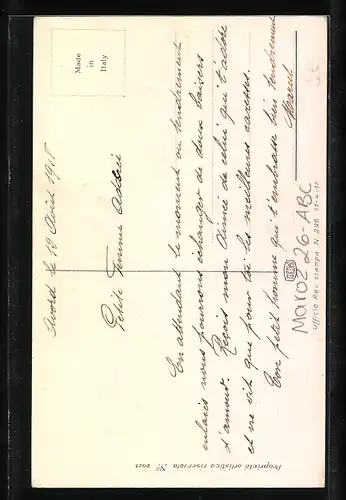 Made
in
Italy
le 12 Avril 1918
Petite Femme Adorée
En attendant le moment ou tendrement
enlacés nous pourrons échanger de doux baisers
d'amour. Reçois mon Aimée de celui qui t'adore
et ne vit que pour toi les meilleures caresses.
Ton petit homme qui t'embrasse bien tendrement
Marcel
Maroz 26-ABC
Ufficio Rev. stampa N. 296 11-4-17
Proprietà artistica riservata No 2023